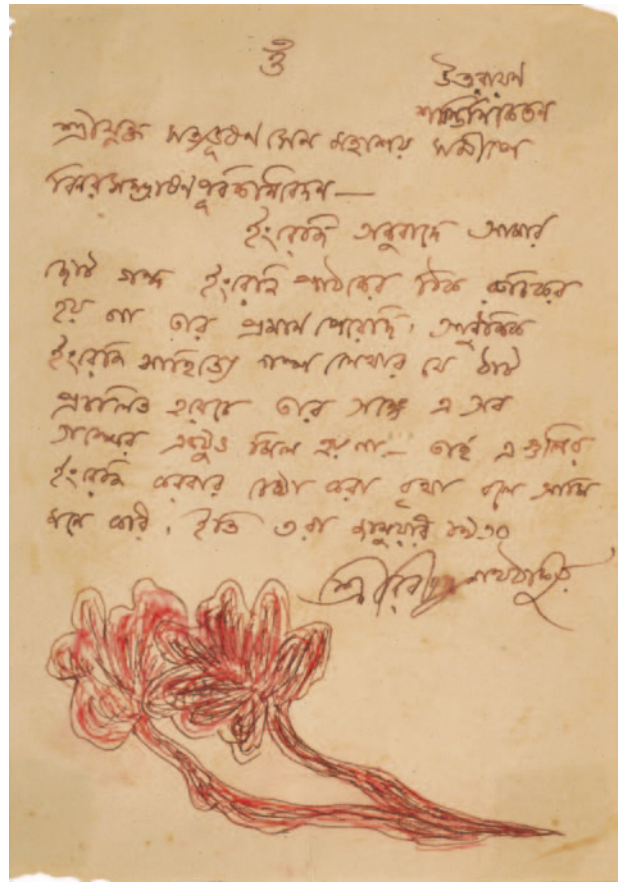 ওঁ
উত্তরায়ণ
শান্তিনিকেতন
শ্রীযুক্ত সত্যভূষণ সেন মহাশয় সমীপে
বিনয়সম্ভাষণপূর্বক নিবেদন —
ইংরেজি অনুবাদে আমার
ছোট গল্প ইংরেজি পাঠকের ঠিক রুচিকর
হয় না তার প্রমাণ পেয়েছি। আধুনিক
ইংরেজি সাহিত্যে গল্প লেখার যে ঠাট
প্রচলিত হয়েছে তার সঙ্গে এ সব
গল্পের একটুও মিল হয় না — তাই এগুলির
ইংরেজি করবার চেষ্টা করা বৃথা বলে আমি
মনে করি। ইতি ৩রা জানুয়ারি ১৯৩০
শ্রীরবীন্দ্রনাথ ঠাকুর